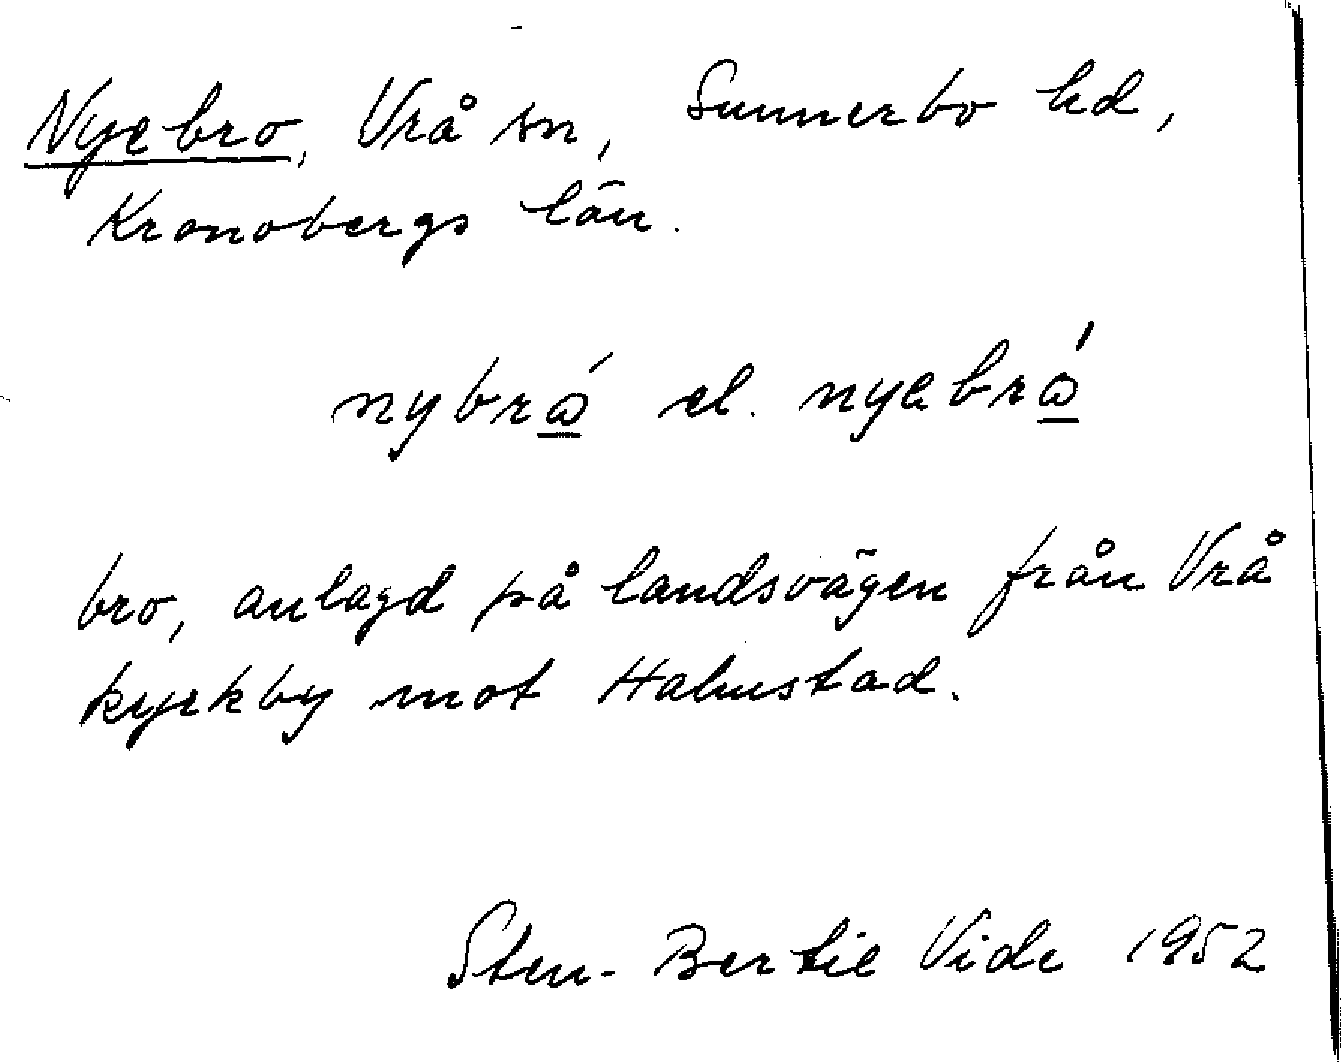 Nyebro, Vrå sn, Sunnerbo hd,
Kronobergs län.
nybró el. nyebró
bro, anlagd på landsvägen från Vrå
kyrkby mot Halmstad.
Sten-Bertil Vide 1952